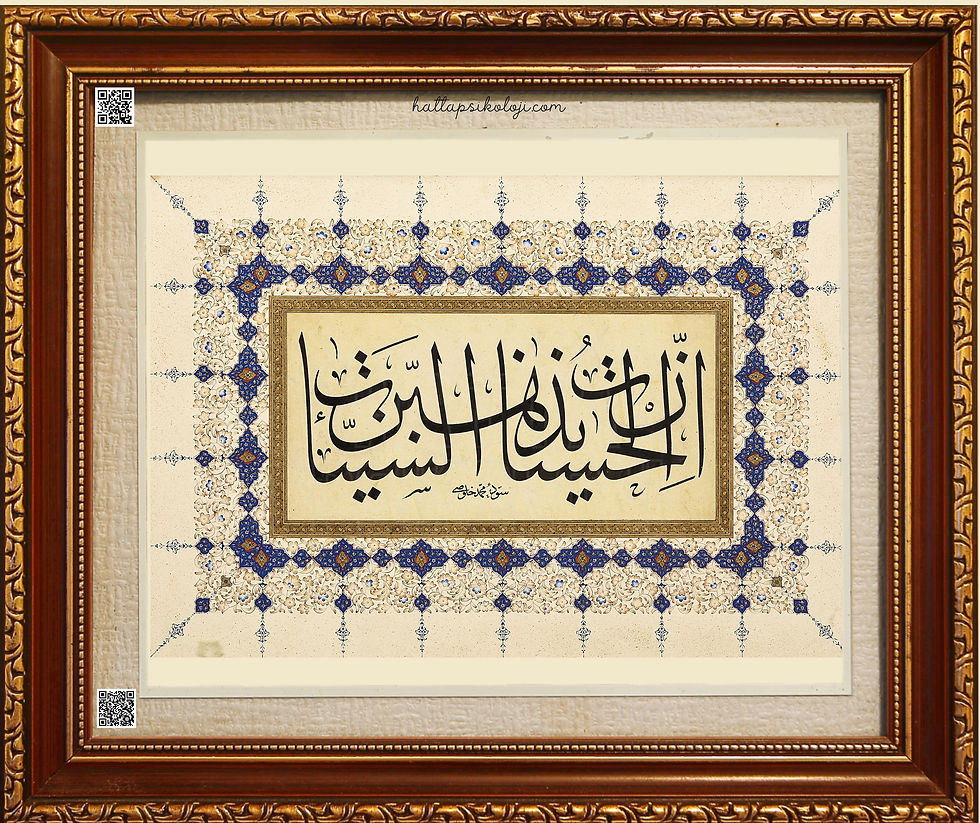 hattapsikoloji.com
اِنَّ الحسنات يُذهبن السيّئات
سوّده محمد خلوصي